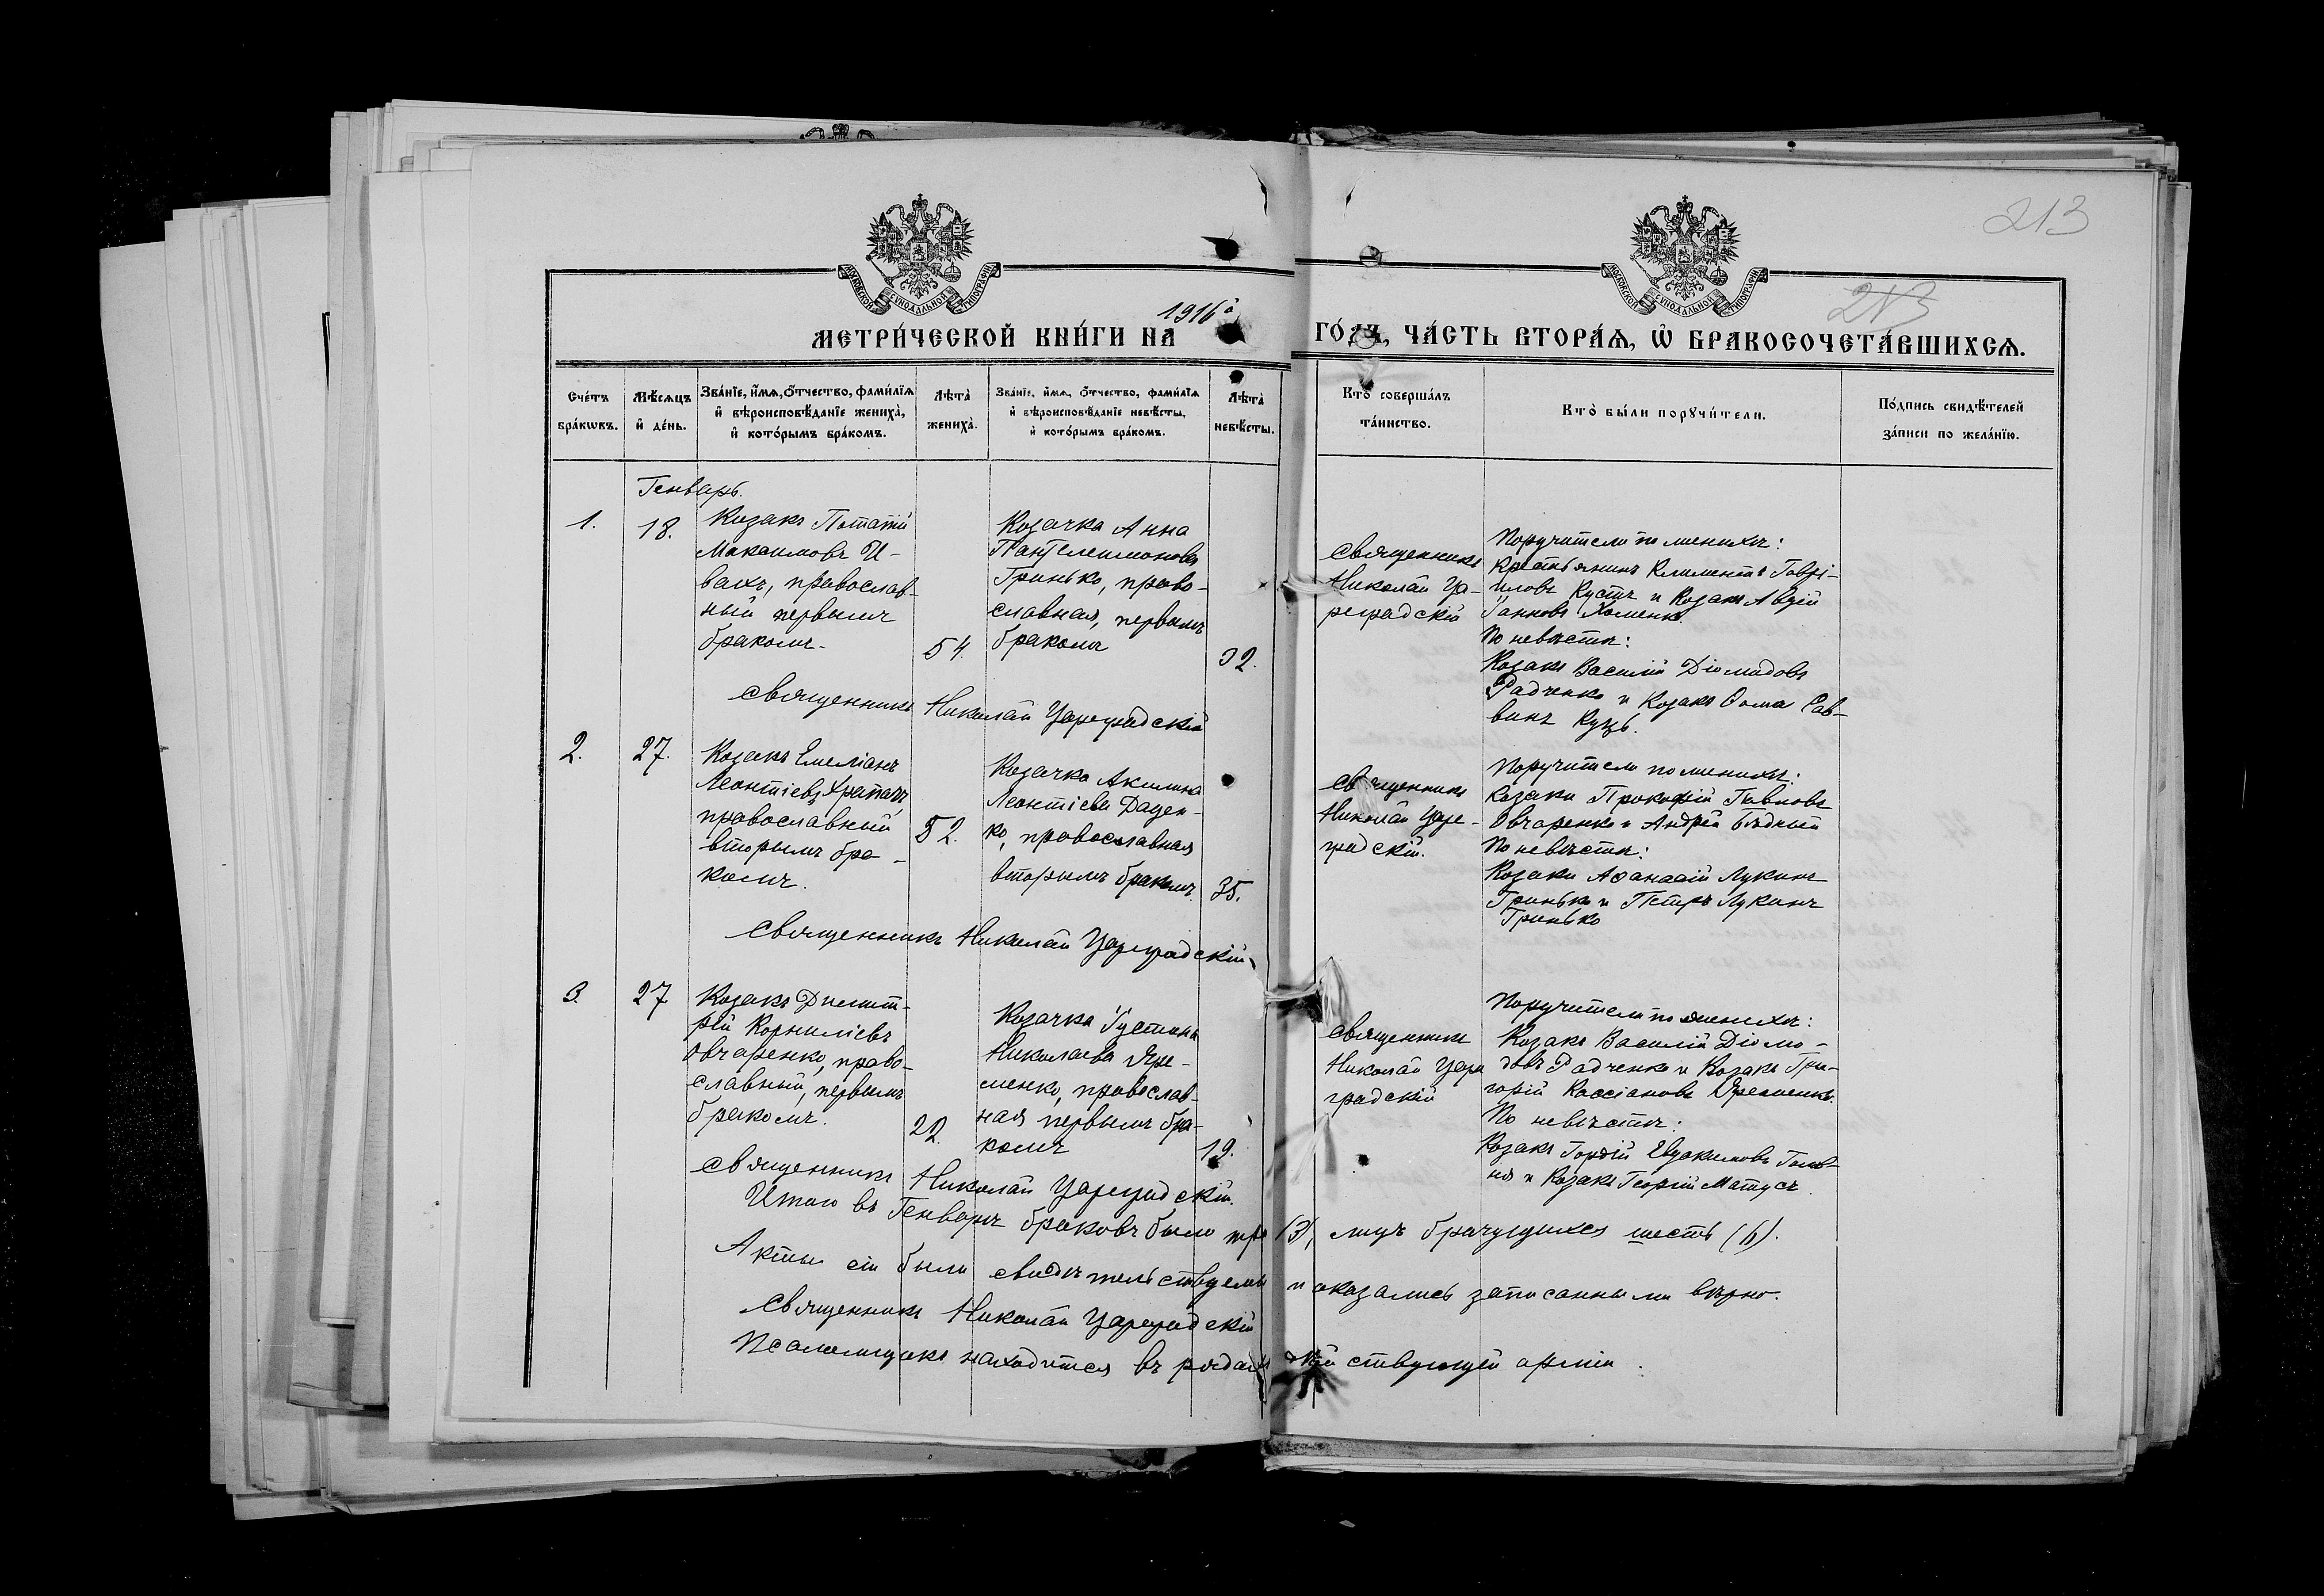 213
213
МОСКОВСКОЙ СѴНОДАЛЬНОЙ ТИПОГРАФІИ
МОСКОВСКОЙ СѴНОДАЛЬНОЙ ТИПОГРАФІИ
1916й
МЕТРИ́ЧЕСКОЙ КНИ́ГИ НА ГО́ДЪ, ЧА́СТЬ ВТОРА́Ѧ, Ѡ҆ БРАКОСОЧЕТА́ВШИХСѦ.
Сче́тъ бра́кѡвъ.
Мѣ́сѧцъ и҆ де́нь.
Зва́нїе, и҆́мѧ, ѻ҆́тчество, фами́лїѧ
и҆ вѣроисповѣ́данїе жениха̀,
и҆ кото́рымъ бра́комъ.
Лѣта̀ жениха̀.
Зва́нїе, и҆́мѧ, ѻ҆́тчество, фами́лїѧ
и҆ вѣроисповѣ́данїе невѣ́сты,
и҆ кото́рымъ бра́комъ.
Лѣта̀ невѣ́сты.
Кто̀ соверша́лъ
та́инство.
Кто̀ бы́ли порꙋчи́тели.
По́дпись свидѣ́телей
за́писи по жела́нїю.
Генварь.
1.
18.
Козакъ Потапій
Максимовъ И-
вахъ, православ-
ный первымъ
бракомъ
54.
Козачка Анна
Пантелеимонова
Гринько, право-
славная, первымъ
бракомъ
32.
Священникъ
Николай Ца-
реградскій
Поручители по женихѣ:
Крестьянинъ Климентъ Гаврі-
иловъ Кустъ и Козакъ Авдій
Хоменко.
По невѣстѣ:
Козакъ Василій Діомидовъ
Радченко и Козакъ Ѳома Сав-
винъ Куць.
Священникъ Николай Цареградскій
2.
27.
Козакъ Емеліанъ
Леонтіевъ
православный
вторымъ бра-
комъ.
52.
Козачка Акилина
Леонтіева Дацен-
ко, православная
вторымъ бракомъ.
35.
Священникъ
Николай Царе-
градскій.
Поручители по женихѣ:
Козаки Прокофій Павловъ
Овчаренко и Андрей Бѣдный
По невѣстѣ:
Козаки Аѳанасій Лукинъ
Гринько и Петръ Лукинъ
Гринько
Священникъ Николай Цареградскій
3.
27
Козакъ Димит-
рій Корниліевъ
Овчаренко, право-
славный, первымъ
бракомъ.
22.
Козачка Іустина
Николаева Яре-
менко, православ-
ная первымъ бра-
комъ
19.
Священникъ
Николай Царе
градскій
Поручители по женихѣ:
Козакъ Василій Діоми-
довъ Радченко и Козакъ Гри-
горій Кассіановъ Яременко.
По невѣстѣ:
Козакъ Гордій Евдокимовъ Голов-
ня и Козакъ Георгій Матусъ.
Священникъ Николай Цареградскій.
Итого въ Генварѣ браковъ было три (3), лицъ брачущихся шесть (6).
Акты сіи были свидѣтельствуемы и оказались записанными вѣрно.
Священникъ Николай Цареградскій
Псаломщикъ находится въ рядахъ дѣйствующей арміи.